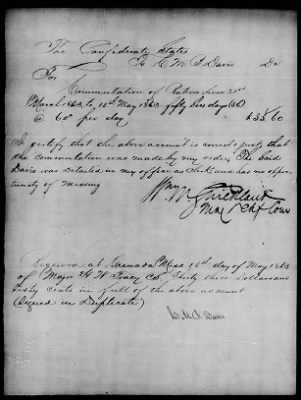 The Confederate States
To L M D Davis Dr
For
Commutation of Rations from 21st
March 1863 to 15th May 1863 fifty six days (56)
@ 60c per day $33.60
I certify that the above account is correct & just that
the commutation was made by my order. The Said
Davis was detailed in my office as Clerk and has no oppor-
tunity of messing
Wm M Strickland
Maj & Chf Com
Received at Grenada Miss 16th day of May 1863
of Major H W Tracy CS Thirty three Dollars and
Sixty Cents in full of the above account
(Signed in Duplicate)
L. M. D. Davis